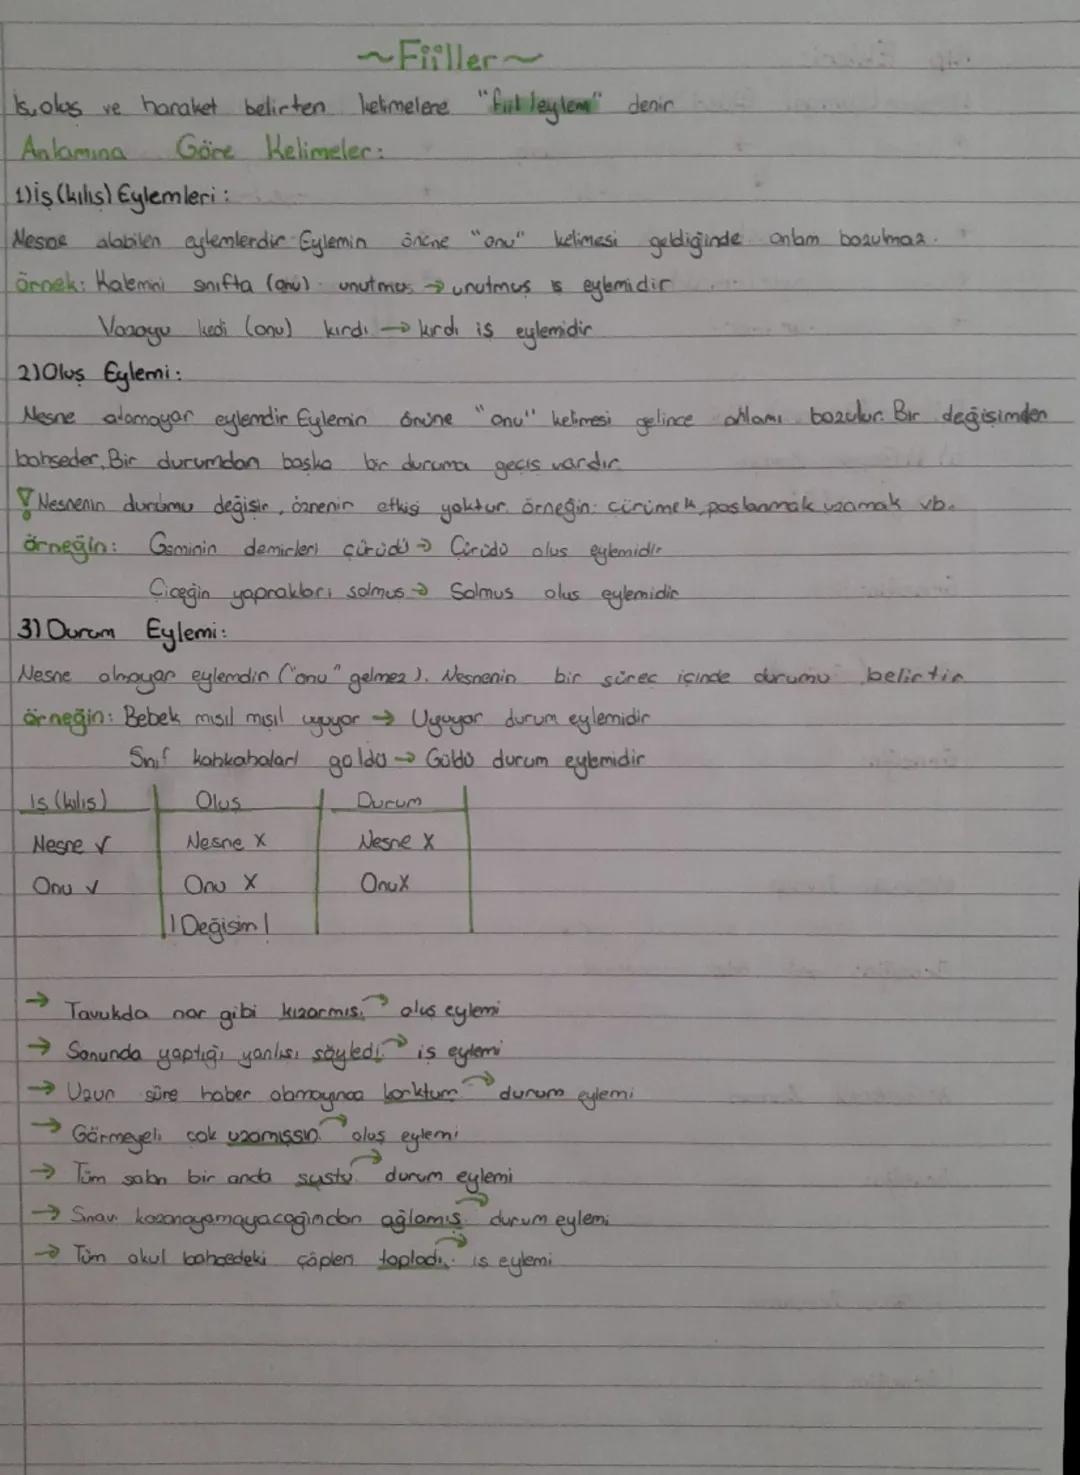 ~Fiiller~
İş, oluş ve haraket belirten kelimelere "fiil/eylem" denir
Anlamına Göre Kelimeler:
1) İş (kılış) Eylemleri:
Nesne alabilen eylemlerdir. Eylemin önüne "onu" kelimesi geldiğinde anlam bozulmaz.
örnek: Kalemini sınıfta (onu) unutmuş → unutmuş iş eylemidir
Vazoyu kedi (onu) kırdı → kırdı iş eylemidir
2) Oluş Eylemi:
Nesne alamayan eylemdir. Eylemin önüne "onu" kelimesi gelince anlamı bozulur. Bir değişimden
bahseder. Bir durumdan başka bir duruma geçiş vardır.
Nesnenin durumu değişir, öznenin etkisi yoktur. örneğin: çürümek, paslanmak uzamak vb.
örneğin: Geminin demirleri çürüdü → Çürüdü oluş eylemidir
Çiçeğin yaprakları solmuş → Solmuş oluş eylemidir
3) Durum Eylemi:
Nesne almayan eylemdir ("onu" gelmez). Nesnenin bir süreç içinde durumu belirtir
örneğin: Bebek mışıl mışıl uyuyor → Uyuyor durum eylemidir
Sınıf kahkahalarl güldü → Güldü durum eylemidir
İş (kılış) Oluş Durum
Nesne ✓ Nesne X Nesne X
Onu ✓ Onu X Onu X
! Değişim !
→ Tavukda nar gibi kızarmış. oluş eylemi
→ Sonunda yaptığı yanlışı söyledi. iş eylemi
→ Uzun süre haber alamayınca korktum durum eylemi
→ Görmeyeli çok uzamışsın. oluş eylemi
→ Tüm salon bir anda sustu. durum eylemi
→ Sınavı kazanayamayacağından ağlamış. durum eylemi
→ Tüm okul bahçedeki çöpleri topladı. iş eylemi